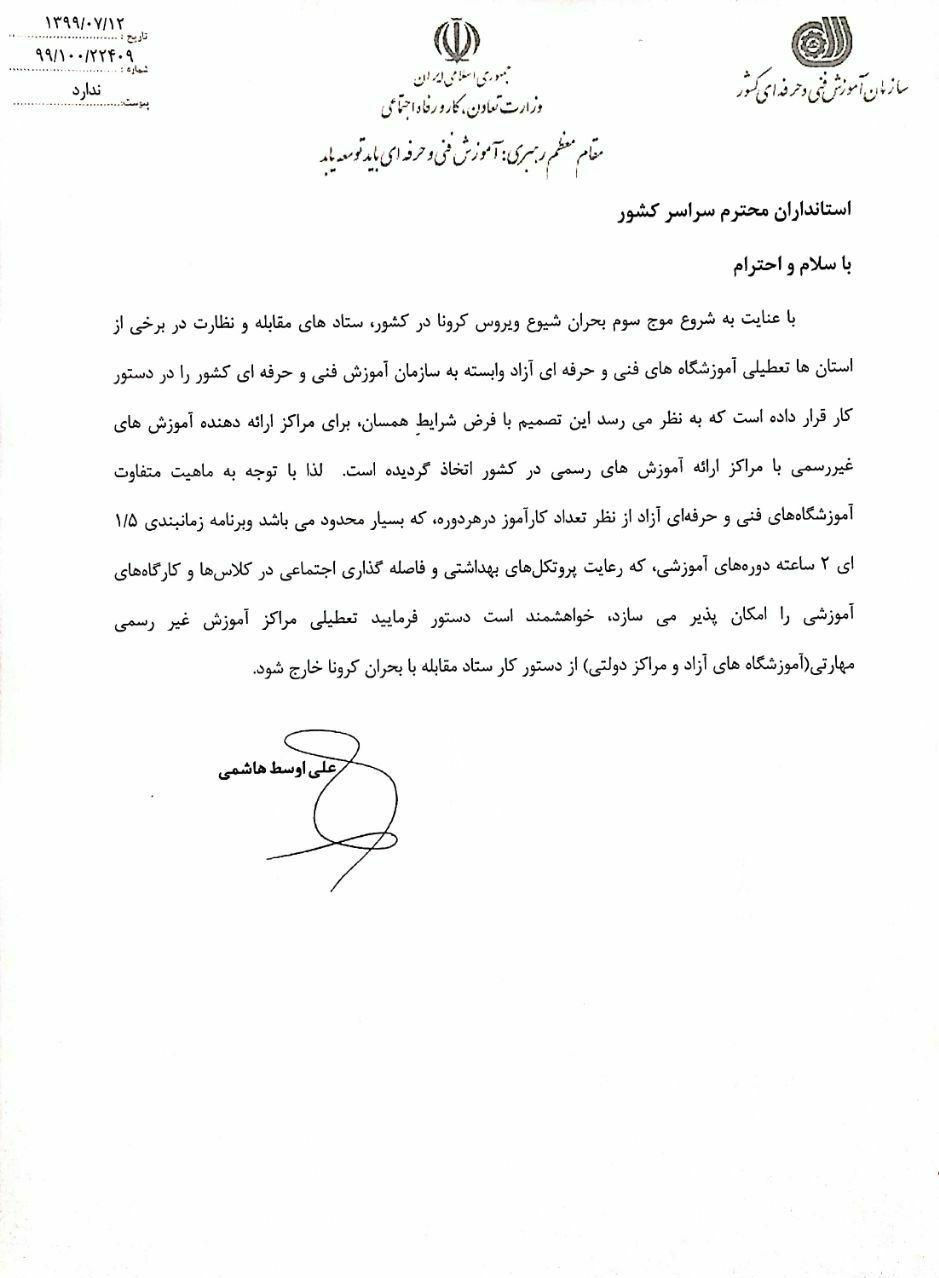 ۱۳۹۹/۰۷/۱۲
تاریخ :
۹۹/۱۰۰/۲۲۴۰۹
شماره :
ندارد
پیوست:
جمهوری اسلامی ایران
وزارت تعاون، کار و رفاه اجتماعی
مقام معظم رهبری: آموزش فنی و حرفه ای باید توسعه یابد
سازمان آموزش فنی و حرفه ای کشور
استانداران محترم سراسر کشور
با سلام و احترام
با عنایت به شروع موج سوم بحران شیوع ویروس کرونا در کشور، ستاد های مقابله و نظارت در برخی از
استان ها تعطیلی آموزشگاه های فنی و حرفه ای آزاد وابسته به سازمان آموزش فنی و حرفه ای کشور را در دستور
کار قرار داده است که به نظر می رسد این تصمیم با فرض شرایطِ همسان، برای مراکز ارائه دهنده آموزش های
غیررسمی با مراکز ارائه آموزش های رسمی در کشور اتخاذ گردیده است. لذا با توجه به ماهیت متفاوت
آموزشگاه‌های فنی و حرفه‌ای آزاد از نظر تعداد کارآموز درهردوره، که بسیار محدود می باشد وبرنامه زمانبندی ۱/۵
ای ۲ ساعته دوره‌های آموزشی، که رعایت پروتکل‌های بهداشتی و فاصله گذاری اجتماعی در کلاس‌ها و کارگاه‌های
آموزشی را امکان پذیر می سازد، خواهشمند است دستور فرمایید تعطیلی مراکز آموزش غیر رسمی
مهارتی(آموزشگاه های آزاد و مراکز دولتی) از دستور کار ستاد مقابله با بحران کرونا خارج شود.
علی اوسط هاشمی